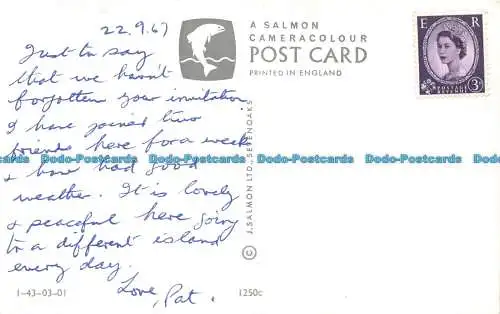 22.9.67
Just to say
that we haven't
forgotten your invitation
I have joined two
friends here for a week
& have had good
weather. It is lovely
& peaceful here going
to a different island
every day.
Love, Pat.
1-43-03-01
1250c
A SALMON
CAMERACOLOUR
POST CARD
PRINTED IN ENGLAND
© J. SALMON LTD., SEVENOAKS
E R
3D
POSTAGE
REVENUE
Dodo-Postcards Dodo-Postcards Dodo-Postcards Dodo-Postcards